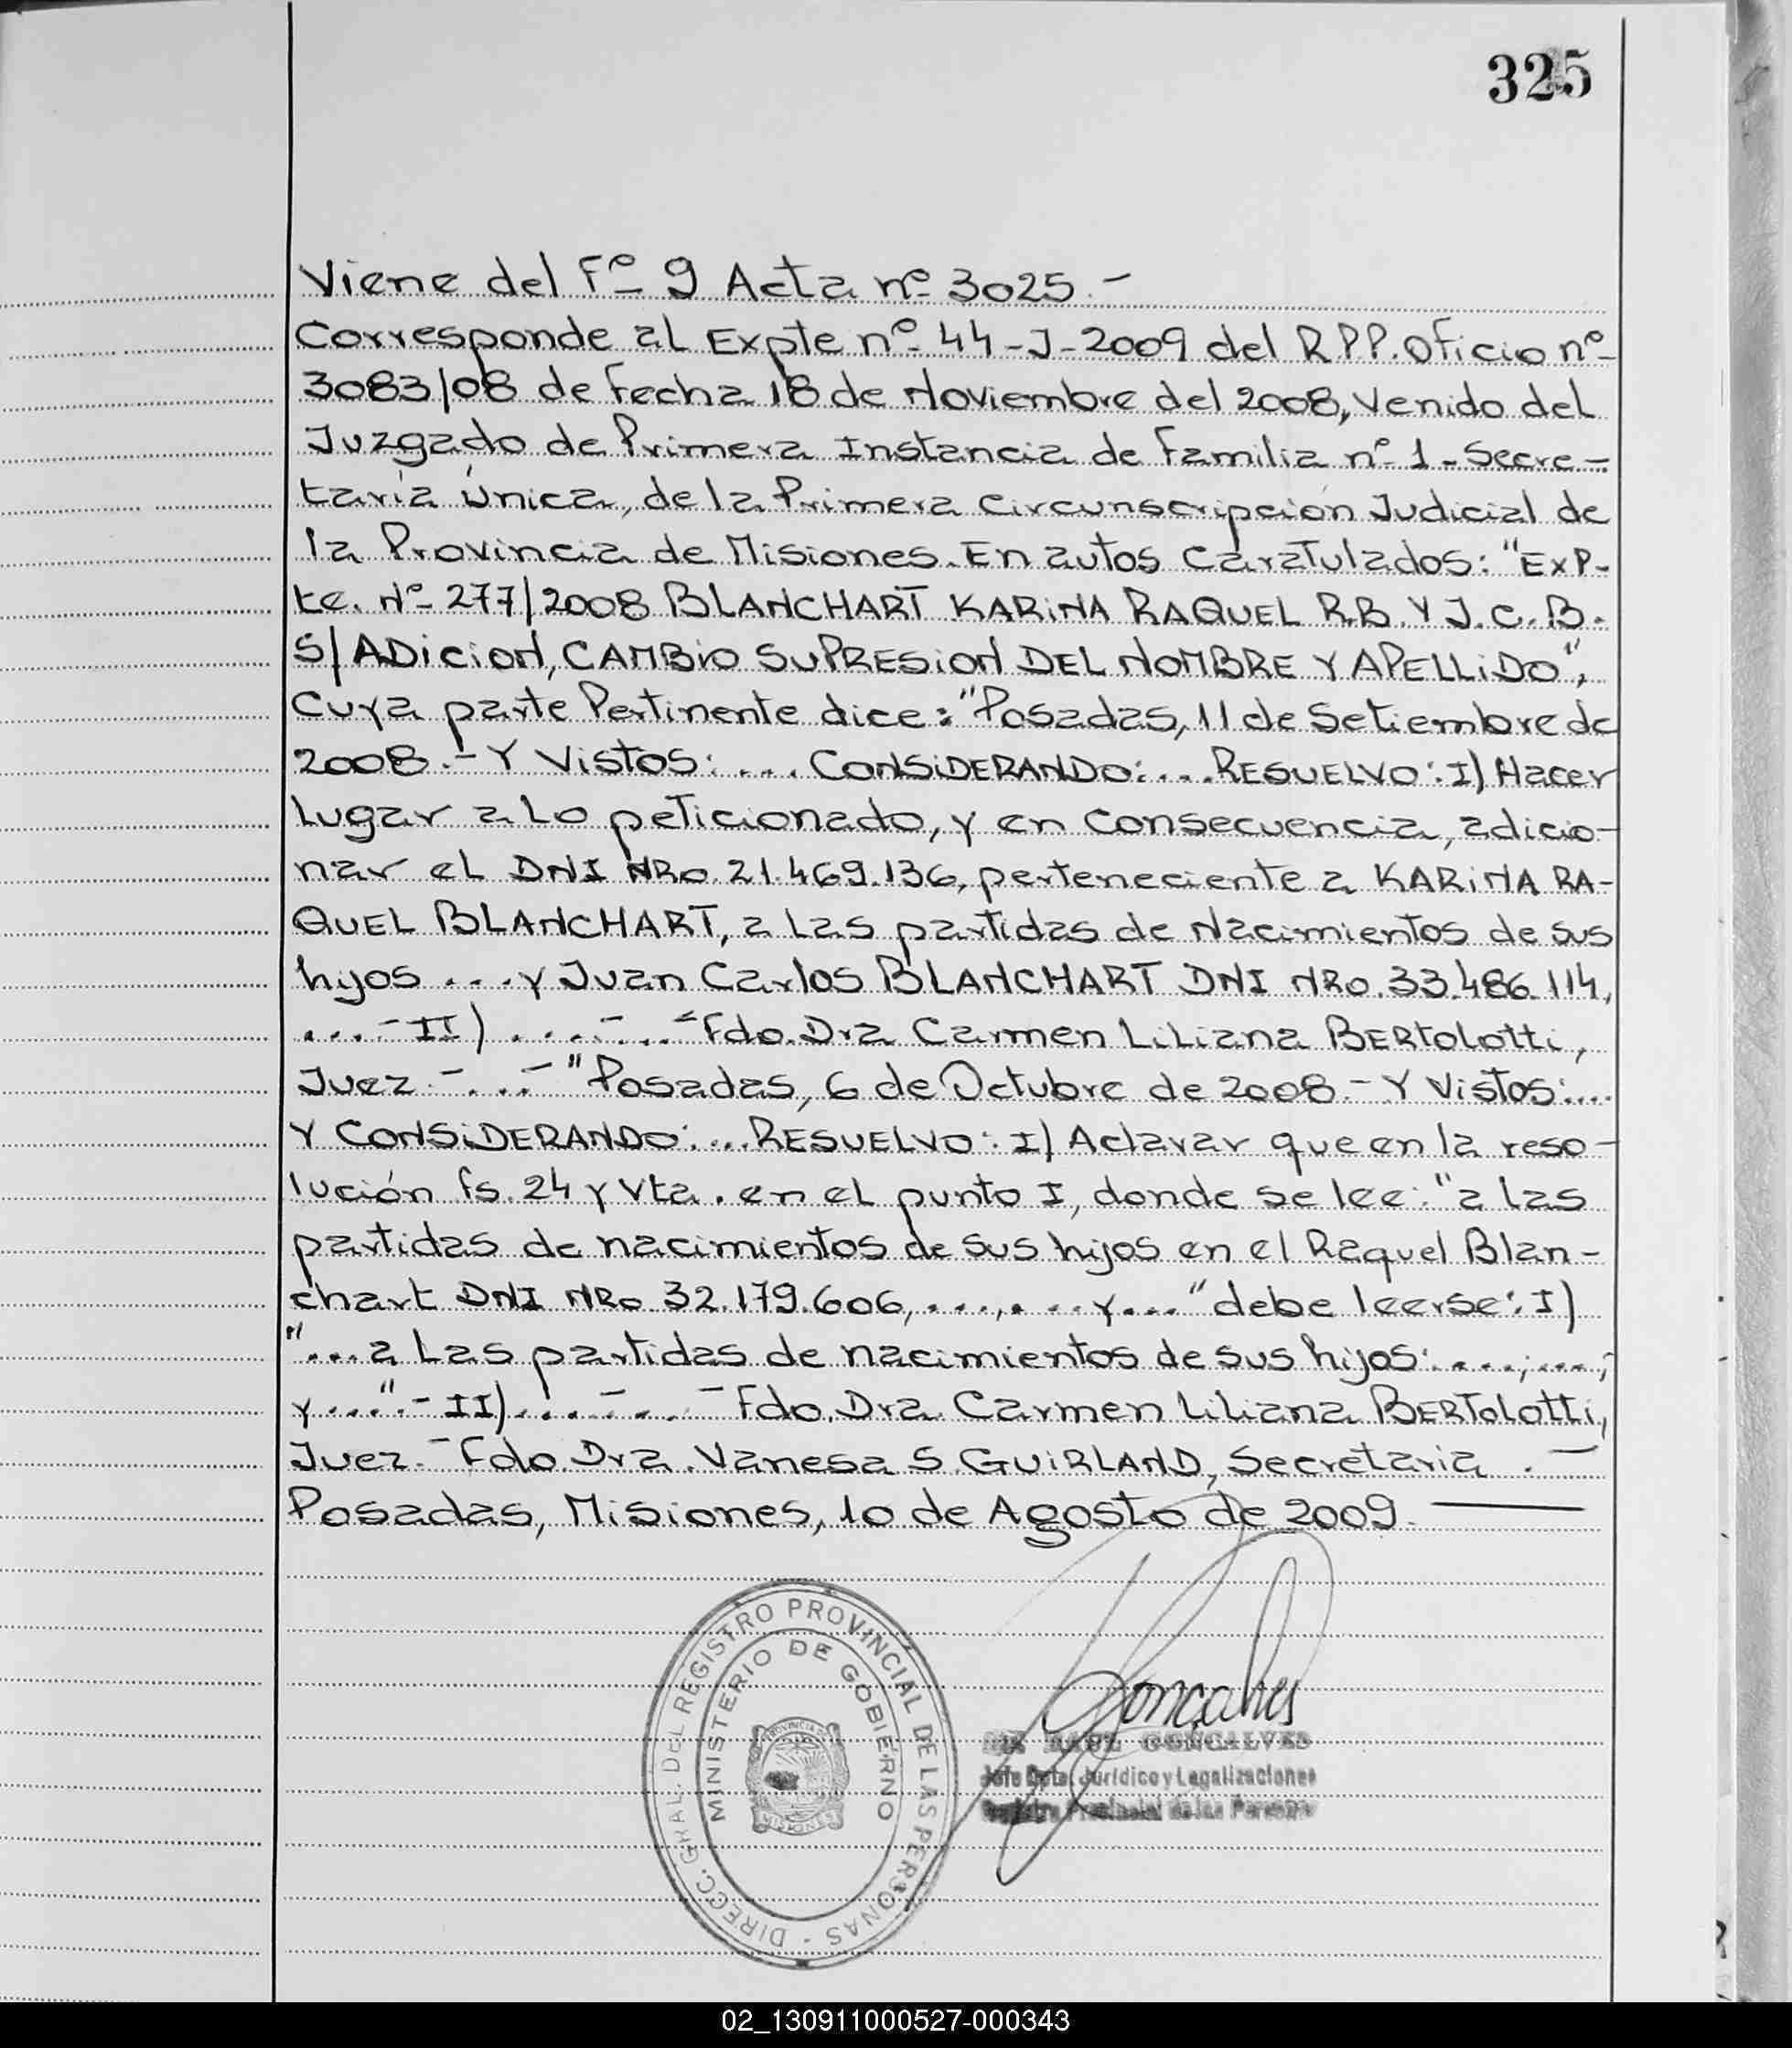 325
Viene del Fº 9 Acta nº 3025.-
Corresponde al Expte nº 44-J-2009 del R.P.P. Oficio nº
3083/08 de Fecha 18 de Noviembre del 2008, Venido del
Juzgado de Primera Instancia de Familia nº 1 - Secre-
taría Única, de la Primera Circunscripción Judicial de
la Provincia de Misiones. En autos Caratulados: "EXP-
te. Nº 277/2008 BLANCHART KARINA RAQUEL R.B. Y J.C.B.
S/ADICION, CAMBIO SUPRESION DEL NOMBRE Y APELLIDO",
Cuya parte Pertinente dice: "Posadas, 11 de Setiembre de
2008.- Y Vistos: ... CONSIDERANDO: ... RESUELVO: I) Hacer
lugar a lo peticionado, y en consecuencia, adicio-
nar el DNI NRO 21.469.136, perteneciente a KARINA RA-
QUEL BLANCHART, a las partidas de Nacimientos de sus
hijos .... y Juan Carlos BLANCHART DNI NRO. 33.486.114,
....- II) ....-...-" Fdo. Dra Carmen Liliana BERTOLOTTI,
Juez.-...-"Posadas, 6 de Octubre de 2008.- Y Vistos: ....
Y CONSIDERANDO: ... RESUELVO: I) Aclarar que en la reso-
lución fs. 24 y Vta. en el punto I, donde se lee: "a las
partidas de nacimientos de sus hijos en el Raquel Blan-
chart DNI NRO 32.179.606, ...,... y ...." debe leerse: I)
"... a las partidas de nacimientos de sus hijos: ....; ....;
y ....".- II) ...-...- Fdo. Dra. Carmen Liliana BERTOLOTTI,
Juez.- Fdo. Dra. Vanesa S. GUIRLAND, Secretaria.-
Posadas, Misiones, 10 de Agosto de 2009.
DIRECC. GRAL. DEL REGISTRO PROVINCIAL DE LAS PERSONAS -
MINISTERIO DE GOBIERNO
PROVINCIA DE
MISIONES
Goncalves
GONCALVES
Jefe Dpto. Jurídico y Legalizaciones
Registro Provincial de las Personas
02_130911000527-000343